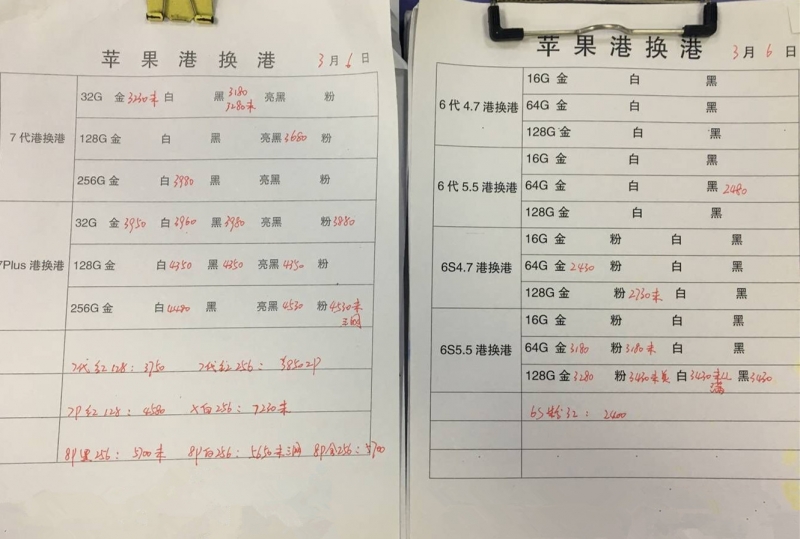 苹果港换港 3月6日
7代港换港
32G 金3230未 白 黑3180 3280未 亮黑 粉
128G金 白 黑 亮黑3680 粉
256G金 白3980 黑 亮黑 粉
7Plus港换港
32G 金3950 白3960 黑3980 亮黑 粉3880
128G金 白4350 黑4350 亮黑4350 粉
256G金 白4480 黑 亮黑4530 粉4530未
三网
7代红128：3750 7代红256：3850
7P红128：4580 X白256：7230未
8P黑256：5700未 8P白256：5650未三网 8P金256：5700
苹果港换港 3月6日
6代4.7港换港
16G 金 白 黑
64G 金 白 黑
128G金 白 黑
6代5.5港换港
16G 金 白 黑
64G 金 白 黑2480
128G金 白 黑
6S4.7港换港
16G 金 粉 白 黑
64G 金2430 粉 白 黑
128G 金 粉2730未 白 黑
6S5.5港换港
16G 金 粉 白 黑
64G 金3180 粉3180未 白 黑
128G金3280 粉3430未美 白3430未 满 黑3430
6S粉32：2400